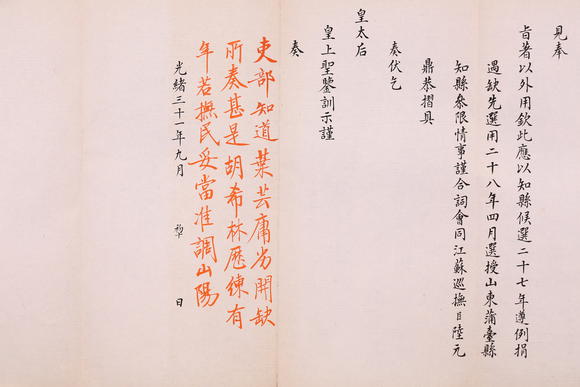 見奉
旨著以外用欽此應以知縣候選二十七年遵例捐
遇缺先選用二十八年四月選授山東蒲臺縣
知縣參限情事謹合詞會同江蘇巡撫臣陸元
鼎恭摺具
奏伏乞
皇太后
皇上聖鑒訓示謹
奏
吏部知道葉芸庸劣開缺
所奏甚是胡希林歷練有
年若撫民妥當准調山陽
光緒三十一年九月 日